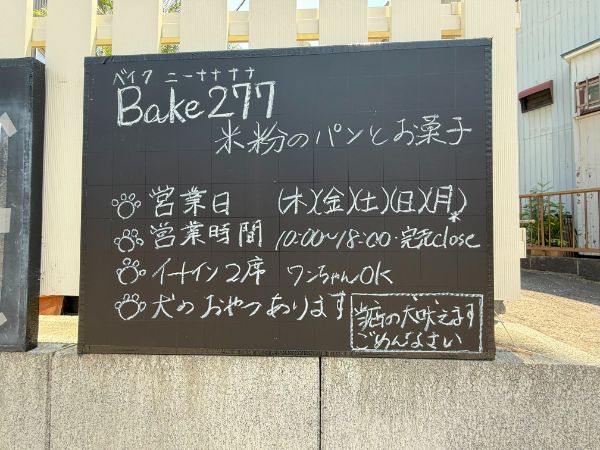 ベイク ニーナナナナ
Bake277
米粉のパンとお菓子
営業日 (木)(金)(土)(日)(月)*
営業時間 10:00〜18:00 完売close
イートイン2席 ワンちゃんOK
犬のおやつあります
当店の犬吠えます
ごめんなさい